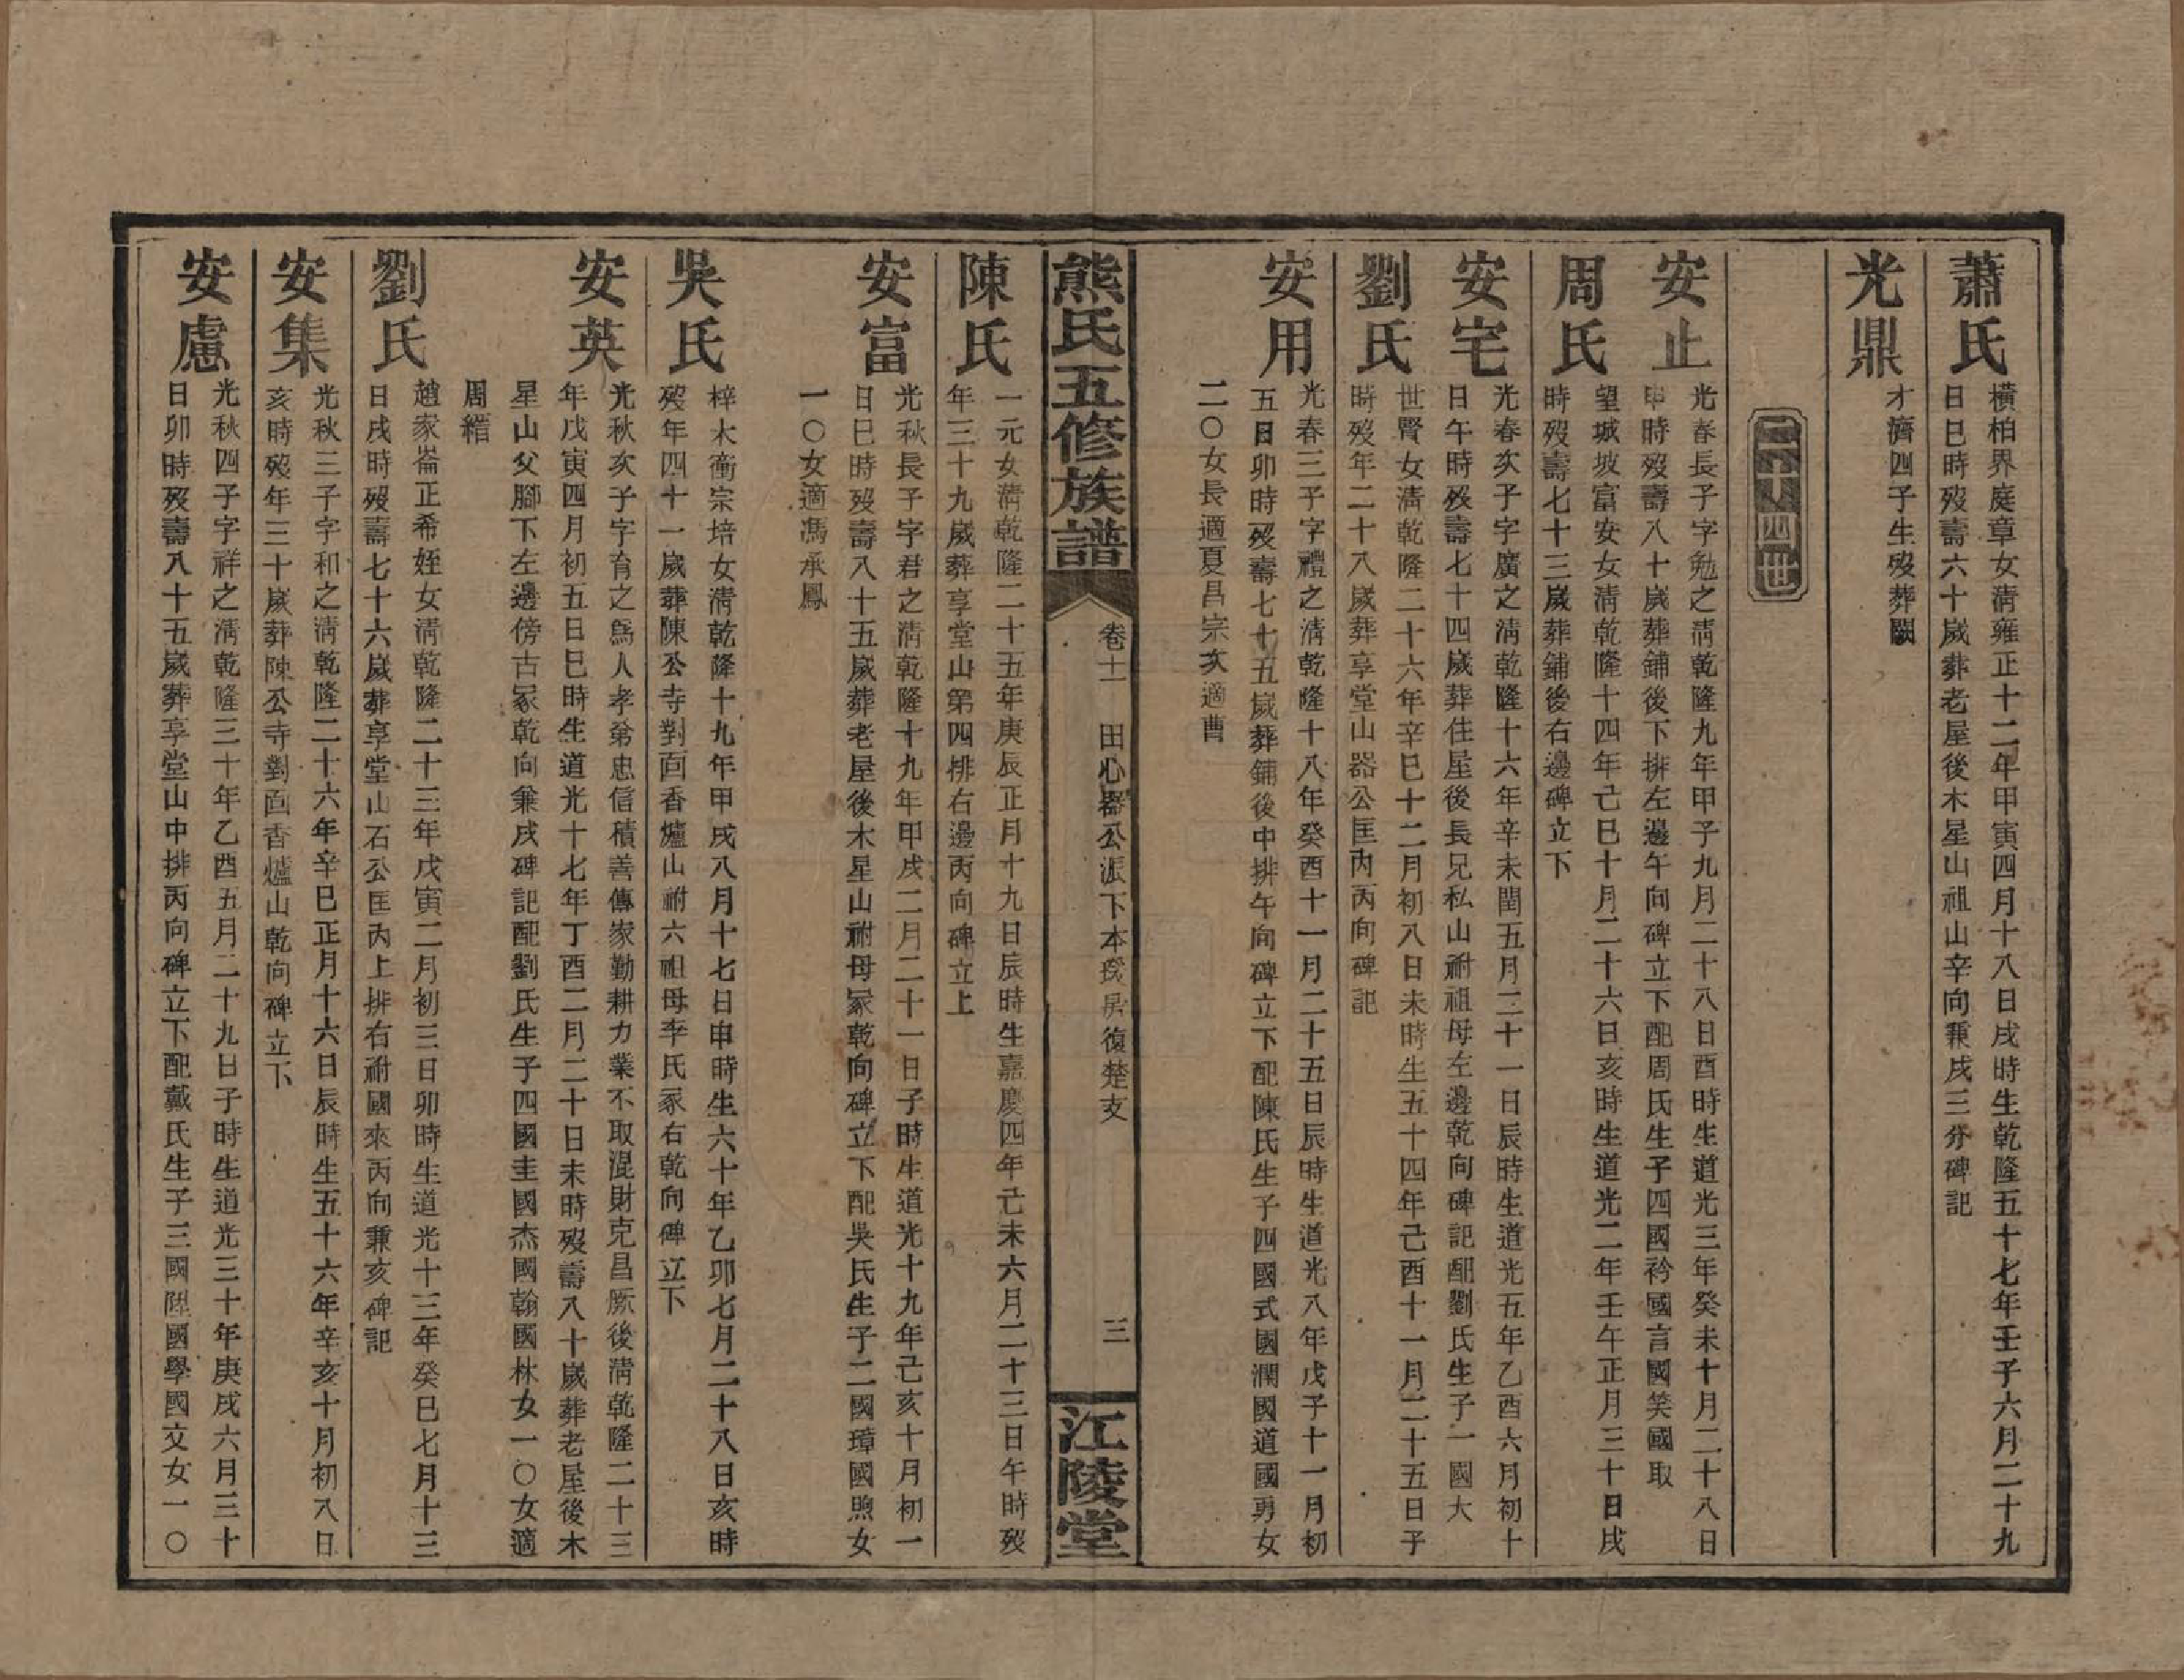 蕭氏
橫柏界庭章女淸雍正十二年甲寅四月十八日戌時生乾隆五十七年壬子六月二十九
日巳時歿壽六十歲葬老屋後木星山祖山辛向兼戌三分碑記
光鼎
才濟四子生歿葬闕
二十四世
安止
光春長子字勉之淸乾隆九年甲子九月二十八日酉時生道光三年癸未十月二十八日
申時歿壽八十歲葬鋪後下排左邊午向碑立下配周氏生子四國衿國言國笑國取
周氏
望城坡富安女淸乾隆十四年己巳十月二十六日亥時生道光二年壬午正月三十日戌
時歿壽七十三歲葬鋪後右邊碑立下
安宅
光春次子字廣之淸乾隆十六年辛未閏五月三十一日辰時生道光五年乙酉六月初十
日午時歿壽七十四歲葬住屋後長兄私山祔祖母左邊乾向碑記配劉氏生子一國大
劉氏
世賢女淸乾隆二十六年辛巳十二月初八日未時生五十四年己酉十一月二十五日子
時歿年二十八歲葬享堂山器公匡內丙向碑記
安用
光春三子字禮之淸乾隆十八年癸酉十一月二十五日辰時生道光八年戊子十一月初
五日卯時歿壽七十五歲葬鋪後中排午向碑立下配陳氏生子四國式國潤國道國勇女
二〇女長適夏昌宗次適曹
熊氏五修族譜
卷十一
田心器公派下本茂房復楚支
三
江陵堂
陳氏
一元女淸乾隆二十五年庚辰正月十九日辰時生嘉慶四年己未六月二十三日午時歿
年三十九歲葬享堂山第四排右邊丙向碑立上
安富
光秋長子字君之淸乾隆十九年甲戌二月二十一日子時生道光十九年己亥十月初一
日巳時歿壽八十五歲葬老屋後木星山祔母冢乾向碑立下配吳氏生子二國璋國煦女
一〇女適馮承鳳
吳氏
梓木衝宗培女淸乾隆十九年甲戌八月十七日申時生六十年乙卯七月二十八日亥時
歿年四十一歲葬陳公寺對面香爐山祔六祖母李氏冢右乾向碑立下
安英
光秋次子字育之爲人孝弟忠信積善傳家勤耕力業不取混財克昌厥後淸乾隆二十三
年戊寅四月初五日巳時生道光十七年丁酉二月二十日未時歿壽八十歲葬老屋後木
星山父腳下左邊傍古冢乾向兼戌碑記配劉氏生子四國圭國杰國翰國林女一〇女適
周縉
劉氏
趙家崙正希姪女淸乾隆二十三年戊寅二月初三日卯時生道光十三年癸巳七月十三
日戌時歿壽七十六歲葬享堂山石公匡內上排右祔國來丙向兼亥碑記
安集
光秋三子字和之淸乾隆二十六年辛巳正月十六日辰時生五十六年辛亥十月初八日
亥時歿年三十歲葬陳公寺對面香爐山乾向碑立下
安慮
光秋四子字祥之淸乾隆三十年乙酉五月二十九日子時生道光三十年庚戌六月三十
日卯時歿壽八十五歲葬享堂山中排丙向碑立下配戴氏生子三國陞國學國文女一〇